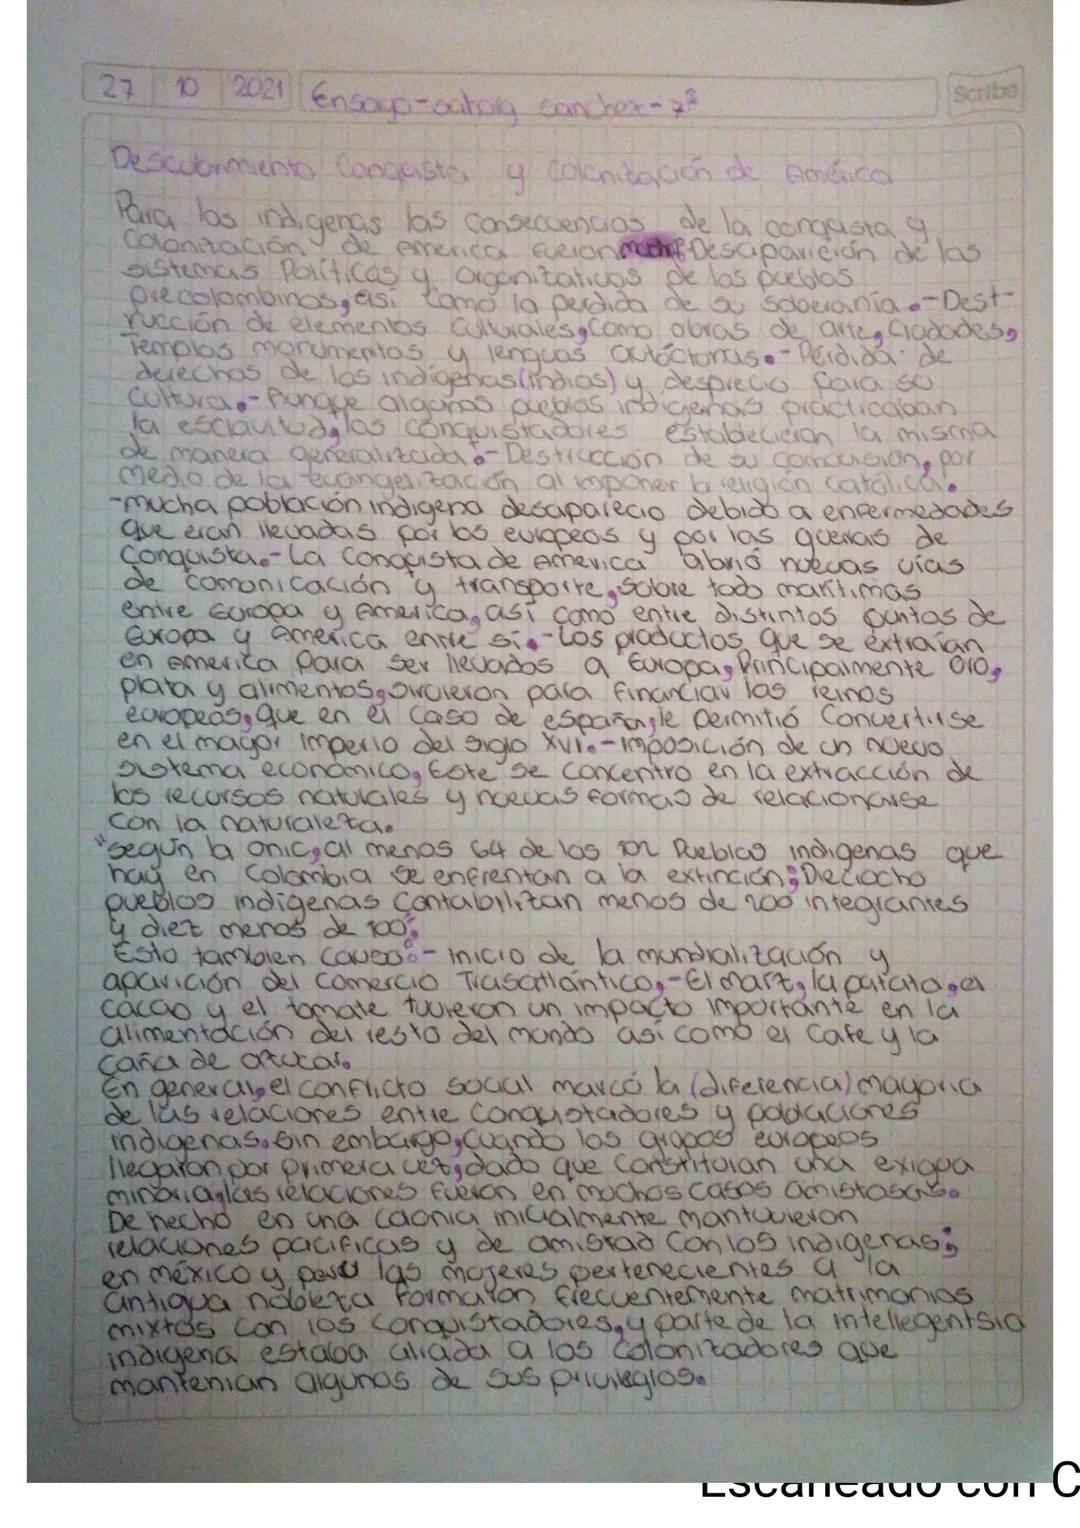 27 10 2021 Ensayo - sanchez - 7ª
Scribe
Descubrimiento Conquista y colonización de América
Para los indigenas las consecuencias de la conquista y
colonización de america fueron Desaparición de las
sistemas Políticas y organizativas de los pueblos
precolombinos, así como la perdida de su soberanía.- Dest-
rucción de elementos culturales, como obras de arte, Ciudades,
Templos monumentos y lenguas autóctonas.- Pérdida de
derechos de los indígenas (indios) y desprecio para su
cultura.- Aunque algunos pueblos indigenas practicaban
la esclavitud, los conquistadores establecieron la misma
de manera generalizada.- Destrucción de su, por
medio de la evangelización al imponer la religión católica.
-mucha población indigena desaparecio debido a enfermedades
que eran llevadas por los europeos y por las guerras de
Conquista.- La Conquista de America abrió nuevas vías
de comunicación y transporte, sobre todo marítimas
entre Europa y America, así como entre distintos puntos de
Europa y America entre sí.- Los productos que se extraían
en America para ser llevados a Europa, Principalmente oro,
plata y alimentos, sirvieron para financiar los reinos
europeos, que en el caso de españa, le permitió Convertirse
en el mayor imperio del siglo XVI.- imposición de un nuevo
sistema económico, Este se concentro en la extracción de
los recursos naturales y nuevas formas de relacionarse
con la naturaleza.
"según la onic, al menos 64 de los 102 Pueblos indigenas que
hay en Colombia se enfrentan a la extinción; Dieciocho
pueblos indigenas contabilizan menos de 200 integrantes
y diez menos de 100".
Esto tambien causo:- inicio de la mundialización y
aparición del comercio Trasatlántico,- El maíz, la patata, el
cacao y el tomate tuvieron un impacto importante en la
alimentación del resto del mundo así como el cafe y la
caña de azucar.
En general, el conflicto social marcó la (diferencia) mayoria
de las relaciones entre conquistadores y poblaciones
indigenas. Sin embargo, cuando los grupos europeos
llegaron por primera vez, dado que constituian una exigua
minoria, las relaciones fueron en muchos casos amistosas.
De hecho en una colonia inicialmente mantuvieron
relaciones pacificas y de amistad con los indigenas;
en méxico y perú las mujeres pertenecientes a la
antigua nobleza formaron frecuentemente matrimonios
mixtos con los conquistadores, y parte de la intellegentsia
indigena estaba aliada a los colonizadores que
mantenian algunos de sus privilegios.
Escaneado con C